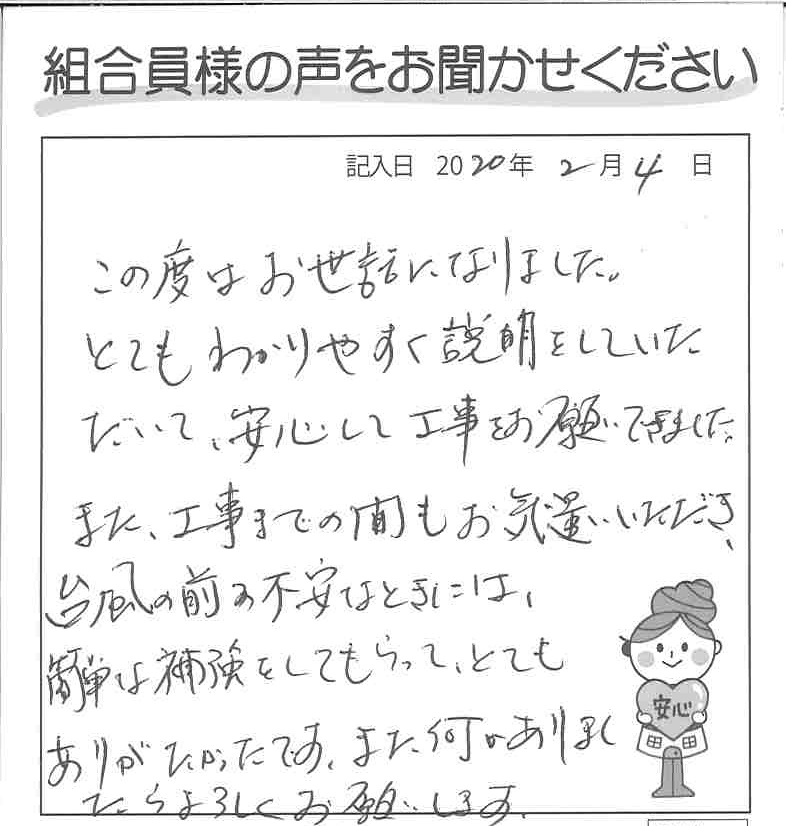 組合員様の声をお聞かせください
記入日 2020年 2月 4日
この度はお世話になりました。
とてもわかりやすく説明をしていた
だいて、安心して工事をお願いできました。
また、工事までの間もお気遣いいただき、
台風の前の不安なときには、
簡単な補強をしてもらって、とても
ありがたかったです。また何かありまし
たらよろしくお願いします。
安心